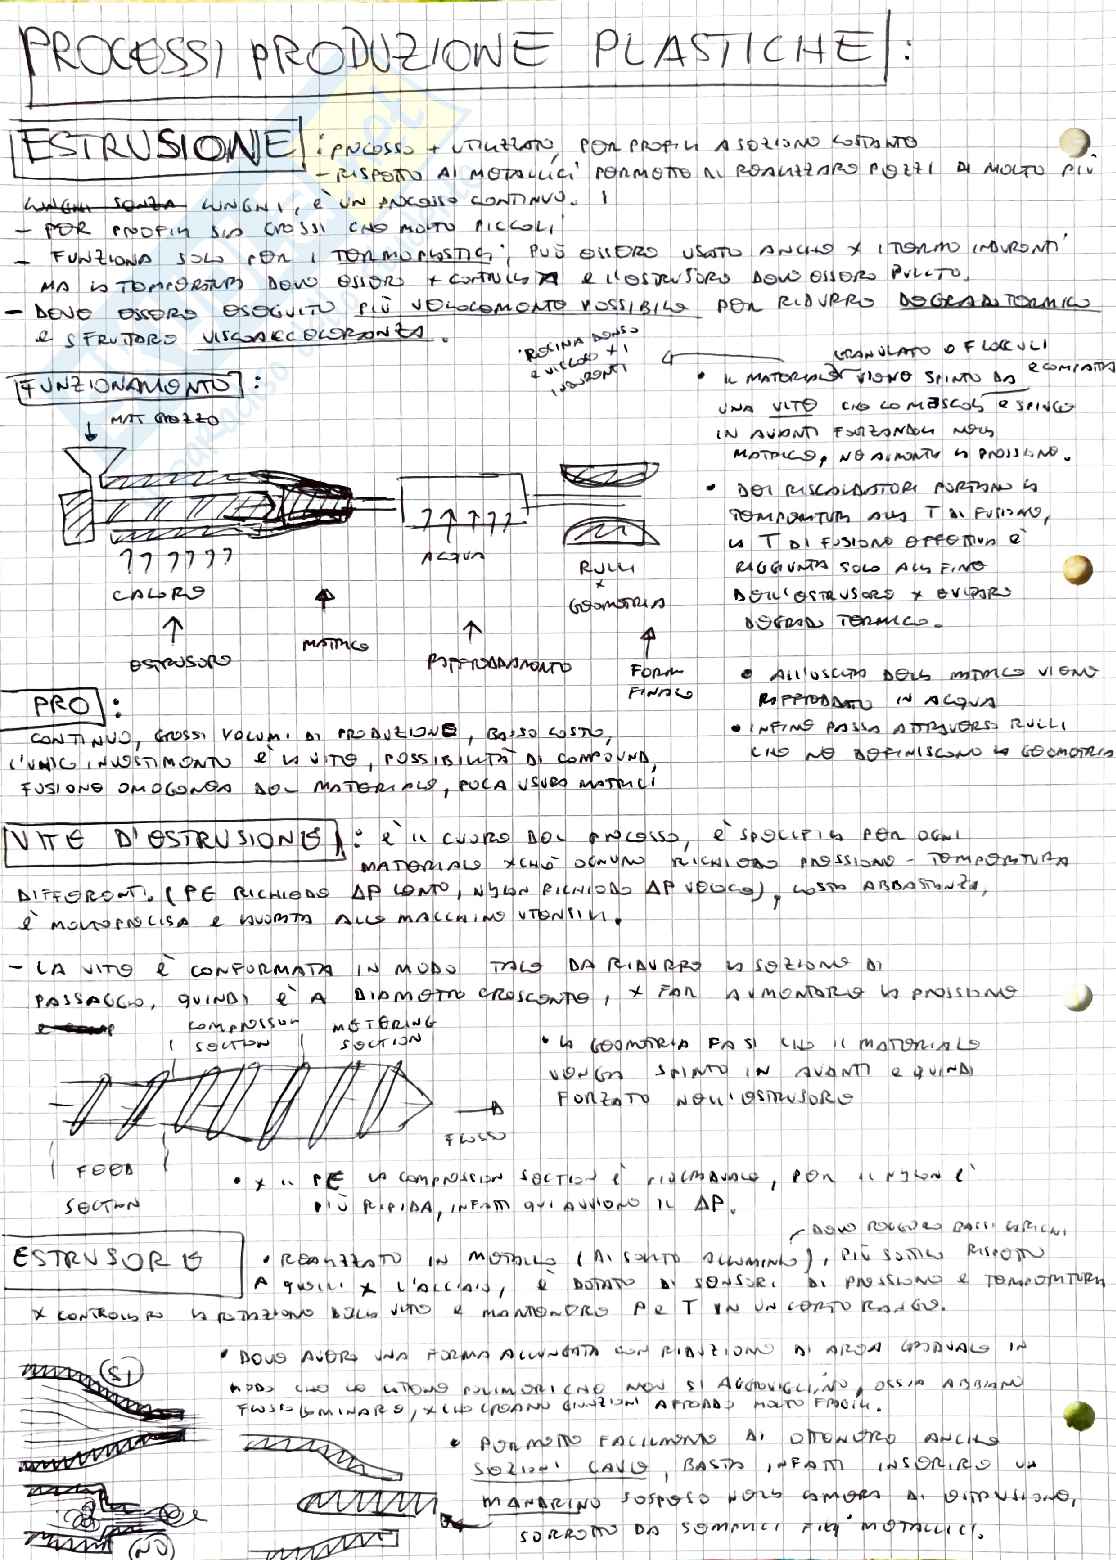 PROCESSI PRODUZIONE PLASTICHE:
ESTRUSIONE: PROCESSO + UTILIZZATO, PER PROFILI A SEZIONE COSTANTE
- RISPETTO AI METALLICI PERMETTE DI REALIZZARE PEZZI DI MOLTO PIÙ
LUNGHI SENZA LUNGHI, È UN PROCESSO CONTINUO.
- PER PROFILI SIA GROSSI CHE MOLTO PICCOLI
- FUNZIONA SOLO PER I TERMOPLASTICI, PUÒ ESSERE USATO ANCHE X I TERMO INDURENTI
MA LA TEMPERATURA DEVE ESSERE + CONTROLLATA E L'ESTRUSORE DEVE ESSERE PULITO.
- DEVE ESSERE ESEGUITO PIÙ VELOCEMENTE POSSIBILE PER RIDURRE DEGRADO TERMICO
E SFRUTTARE VISCOELEVORANZA.
RESINA DENSO
E VISCOSO X I
INDURENTI
GRANULATO O FIOCCHI
FUNZIONAMENTO:
• IL MATERIALE VIENE SPINTO DA
UNA VITE CHE LO MESCOLA E SPINGE
IN AVANTI FORZANDOLO NELLA
MATRICE, NE AUMENTA LA PRESSIONE.
MAT. GREZZO
CALORE
ACQUA
RULLI
X
GEOMETRIA
ESTRUSORE
MATRICE
RAFFREDDAMENTO
FORMA
FINALE
• DEI RISCALDATORI PORTANO LA
TEMPERATURA ALLA T DI FUSIONE,
LA T DI FUSIONE EFFETTIVA È
RAGGIUNTA SOLO ALLA FINE
DELL'ESTRUSORE X EVITARE
DEGRADO TERMICO.
• ALL'USCITA DELLA MATRICE VIENE
RAFFREDDATO IN ACQUA
• INFINE PASSA ATTRAVERSO RULLI
CHE NE DEFINISCONO LA GEOMETRIA
PRO:
CONTINUO, GROSSI VOLUMI DI PRODUZIONE, BASSO COSTO,
L'UNICO INVESTIMENTO È LA VITE, POSSIBILITÀ DI COMPOUND,
FUSIONE OMOGENEA DEL MATERIALE, POCA USURA MATRICI
VITE D'ESTRUSIONE: È IL CUORE DEL PROCESSO, È SPECIFICA PER OGNI
MATERIALE XCHÈ OGNUNO RICHIEDE PRESSIONE - TEMPERATURA
DIFFERENTI. (PE RICHIEDE ΔP LENTO, NYLON RICHIEDE ΔP VELOCE), COSTA ABBASTANZA,
È MOLTO PRECISA E LAVORATA ALLE MACCHINE UTENSILI.
- LA VITE È CONFORMATA IN MODO TALE DA RIDURRE LA SEZIONE DI
PASSAGGIO, QUINDI È A DIAMETRO CRESCENTE, X FAR AUMENTARE LA PRESSIONE
COMPRESSION
SECTION
METERING
SECTION
FEED
SECTION
FLUSSO
• LA GEOMETRIA FA SI CHE IL MATERIALE
VENGA SPINTO IN AVANTI E QUINDI
FORZATO NELL'ESTRUSORE
• X IL PE LA COMPRESSION SECTION È GRADUALE, PER IL NYLON È
PIÙ RIPIDA, INFATTI QUI AVVIENE IL ΔP.
DEVE REGGERE BASSI CARICHI
ESTRUSORE
• REALIZZATO IN METALLO (DI SOLITO ALLUMINIO), PIÙ SOTTILE RISPETTO
A QUELLI X L'ACCIAIO, È DOTATO DI SENSORI DI PRESSIONE E TEMPERATURA
X CONTROLLARE LA ROTAZIONE DELLA VITE E MANTENERE P E T IN UN CERTO RANGE.
• DEVE AVERE UNA FORMA ALLUNGATA CON RIDUZIONE DI AREA GRADUALE IN
MODO CHE LE CATENE POLIMERICHE NON SI AGGROVIGLINO, OSSIA ABBIAMO
FLUSSO LAMINARE, XCHÈ CREANO GIUNZIONI A FREDDO MOLTO FRAGILI.
(SI)
(NO)
• PERMETTE FACILMENTE DI OTTENERE ANCHE
SEZIONI CAVE, BASTA INFATTI INSERIRE UN
MANDRINO SOSPESO NELLA CAMERA DI ESTRUSIONE,
SORRETTO DA SEMPLICI FILI METALLICI.